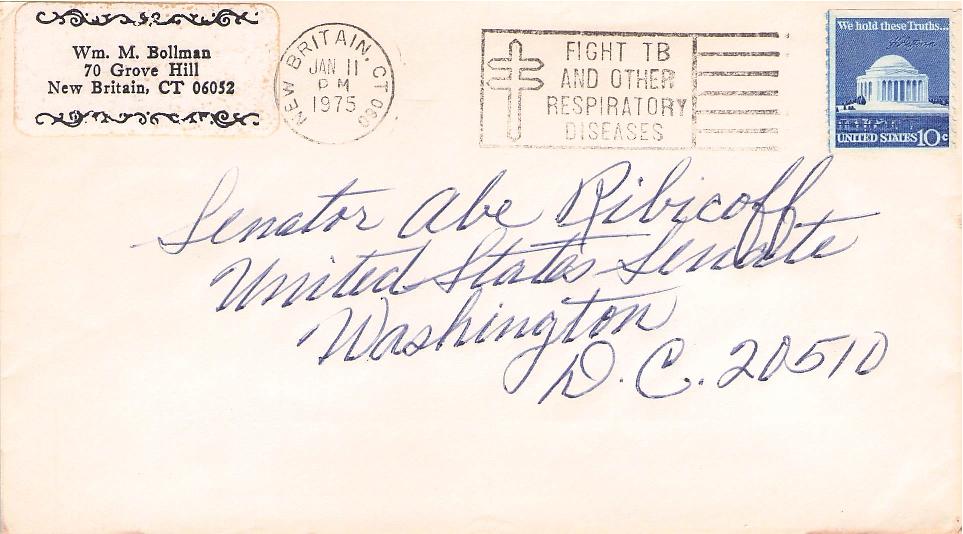 Wm. M. Bollman
70 Grove Hill
New Britain, CT 06052
NEW BRITAIN, CT 060
JAN 11
PM
1975
FIGHT TB
AND OTHER
RESPIRATORY
DISEASES
We hold these Truths...
UNITED STATES 10c
Senator Abe Ribicoff
United States Senate
Washington
D.C. 20510